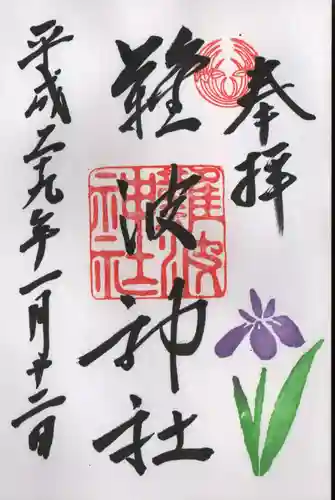 奉拝
難波神社
難波神社
平成二九年一月廿二日